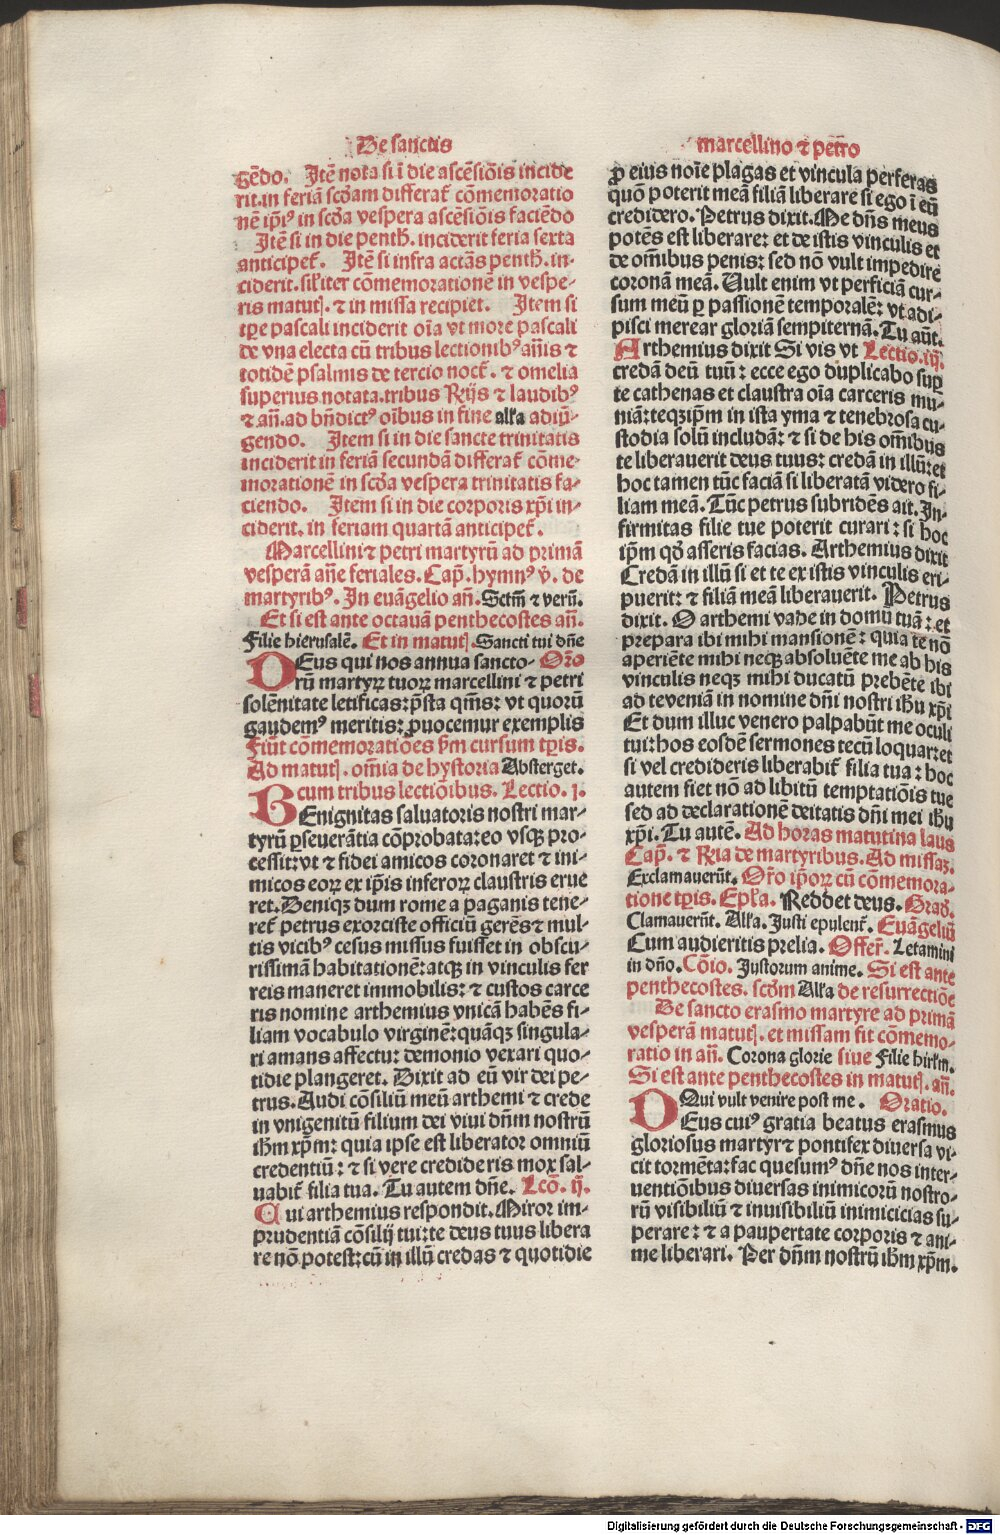 De sanctis
gēdo. Itē nota si ī die ascēsiōis incide
rit.in feriā scd̄am differat̄ cōmemoratio
nē ip̄iꝰ in scd̄a vespera ascēsiōis faciēdo
Itē si in die penth̄. inciderit feria sexta
anticipet̄. Itē si infra octauas penth̄. in⸗
ciderit. sil̄iter cōmemorationē in vespe⸗
ris matuꝭ. ⁊ in missa recipiet. Item si
tp̄e pascali inciderit oīa vt more pascali
de vna electa cū tribus lectionibꝰ an̄is ⁊
totidē psalmis de tercio noct̄. ⁊ omelia
superius notata.tribus Rn̄ijs ⁊ laudibꝰ
⁊ an̄.ad bn̄dictꝰ oībus in fine alła adiū⸗
gendo. Item si in die sancte trinitatis
inciderit in feriā secundā differat̄ cōme⸗
morationē in scd̄a vespera trinitatis fa⸗
ciendo. Item si in die corporis xp̄i in⸗
ciderit. in feriam quartā anticipet̄.
Marcellini ⁊ petri martyrū ad primā
vesperā an̄e feriales. Cap̄. hymnꝰ v̄. de
martyribꝰ. In euāgelio an̄. Sctm̄ ⁊ verū.
Et si est ante octauā penthecostes an̄.
Filie hierusalē. Et in matuꝭ. Sancti tui dn̄e
DEus qui nos annua sancto⸗ Or̄o
rū martyrꝝ tuoꝝ marcellini ⁊ petri
solēnitate letificas: p̄sta qm̄s: vt quorū
gaudemꝰ meritis: ꝓuocemur exemplis
Fiūt cōmemoratiōes scd̄m cursum tp̄is.
Ad matuꝭ. om̄ia de hystoria Absterget.
cum tribus lectiōibus. Lectio. j.
BEnignitas saluatoris nostri mar⸗
tyrū ꝑseuerātia cōprobata: eo vsqꝫ pro⸗
cessit: vt ⁊ fidei amicos coronaret ⁊ ini⸗
micos eoꝝ ex ip̄is inferoꝝ claustris erue
ret. Deniqꝫ dum rome a paganis tene⸗
ret̄ petrus exorciste officiū gerēs ⁊ mul⸗
tis vicibꝰ cesus missus fuisset in obscu⸗
rissimā habitationē: atqꝫ in vinculis fer
reis maneret immobilis: ⁊ custos carce
ris nomine arthemius vnicā habēs fi⸗
liam vocabulo virginē: quāqꝫ singula⸗
ri amans affectu: demonio vexari quo⸗
tidie plangeret. Dixit ad eū vir dei pe⸗
trus. Audi cōsiliū meū arthemi ⁊ crede
in vnigenitū filium dei viui dn̄m nostrū
ih̄m xp̄m: quia ipse est liberator omniū
credentiū: ⁊ si vere credideris mox sal⸗
uabit̄ filia tua. Tu autem dn̄e. Lcō. ij.
Cui arthemius respondit. Miror im⸗
prudentiā cōsilij tui: te deus tuus libera
re nō potest: cū in illū credas ⁊ quotidie
marcellino ⁊ petro
ꝓ eius noīe plagas et vincula perferas
quō poterit meā filiā liberare si ego ī eū
credidero. Petrus dixit. Me dn̄s meus
potēs est liberare: et de istis vinculis et
de om̄ibus penis: sed nō vult impedire
coronā meā. Uult enim vt perficiā cur⸗
sum meū ꝑ passionē temporalē: vt adi⸗
pisci merear gloriā sempiternā. Tu aūt.
Arthemius dixit Si vis vt Lectio. iij.
credā deū tuū: ecce ego duplicabo suꝑ
te cathenas et claustra oīa carceris mu⸗
niā: teqꝫ ip̄m in ista yma ⁊ tenebrosa cu⸗
stodia solū includā: ⁊ si de his om̄ibus
te liberauerit deus tuus: credā in illū: et
hoc tamen tūc faciā si liberatā videro fi⸗
liam meā. Tūc petrus subridēs ait. In⸗
firmitas filie tue poterit curari: si hoc
ip̄m qd̄ asseris facias. Arthemius dixit
Credā in illū si et te ex istis vinculis eri⸗
puerit: ⁊ filiā meā liberauerit. Petrus
dixit. O arthemi vade in domū tuā: et
prepara ibi mihi mansionē: quia te nō
aperiēte mihi neqꝫ absoluēte me ab his
vinculis neqꝫ mihi ducatū prebēte ibi
ad te veniā in nomine dn̄i nostri ih̄u xp̄i
Et dum illuc venero palpabūt me oculi
tui: hos eosdē sermones tecū loquar: et
si vel credideris liberabit̄ filia tua: hoc
autem fiet nō ad libitū temptatiōis tue
sed ad declarationē deitatis dn̄i mei ih̄u
xp̄i. Tu autē. Ad horas matutina laus
Cap̄. ⁊ Rn̄ia de martyribus. Ad missaꝫ.
Exclamauerūt. Or̄o ip̄oꝝ cū cōmemora⸗
tione tp̄is. Epl̄a. Reddet deus. Grad̄.
Clamauerūt. Alł̄a. Justi epulent̄. Euāgeliū
Cum audieritis prelia. Offer̄. Letamini
in dn̄o. Cōio. Justorum anime. Si est ante
penthecostes. scd̄m Alł̄a de resurrectiōe
De sancto erasmo martyre ad primā
vesperā matuꝭ. et missam fit cōmemo⸗
ratio in an̄. Corona glorie siue Filie hirłm.
Si est ante penthecostes in matuꝭ. an̄.
Qui vult venire post me. Oratio.
DEus cuiꝰ gratia beatus erasmus
gloriosus martyr ⁊ pontifex diuersa vi⸗
cit tormēta: fac quesumꝰ dn̄e nos inter⸗
uentiōibus diuersas inimicorū nostro⸗
rū visibiliū ⁊ inuisibiliū inimicicias su⸗
perare: ⁊ a paupertate corporis ⁊ ani⸗
me liberari. Per dn̄m nostrū ih̄m xp̄m.
Digitalisierung gefördert durch die Deutsche Forschungsgemeinschaft - DFG